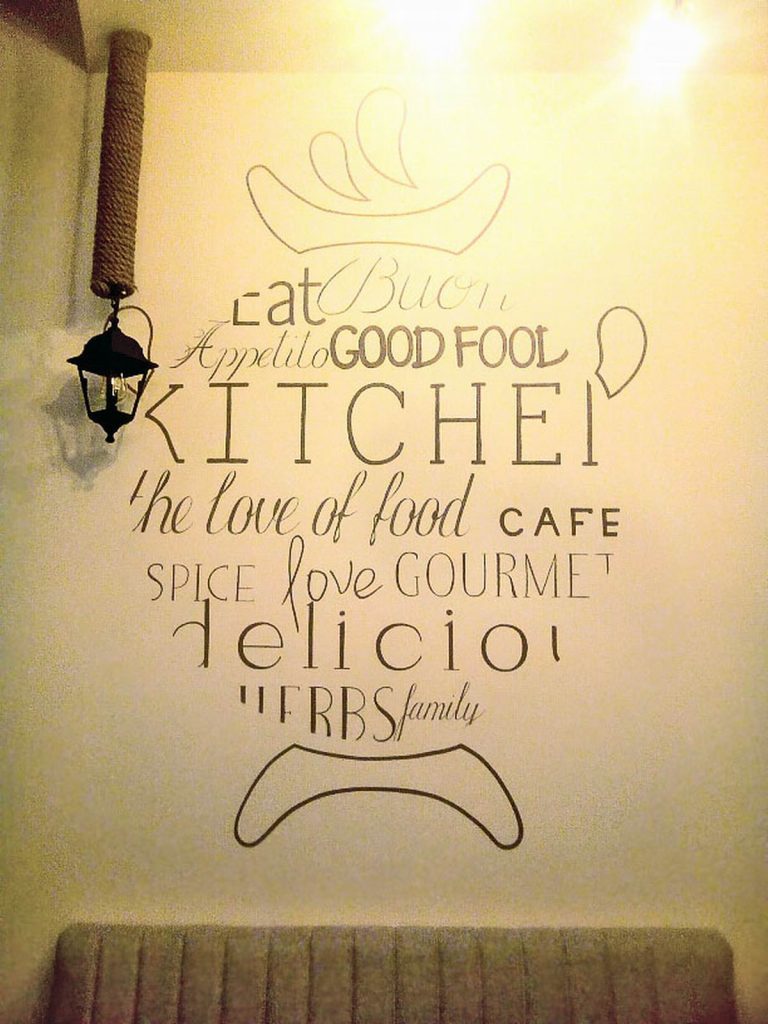 Eat Buon
Appetito GOOD FOOD
KITCHEN
the love of food CAFE
SPICE love GOURMET
deliciou
HERBS family